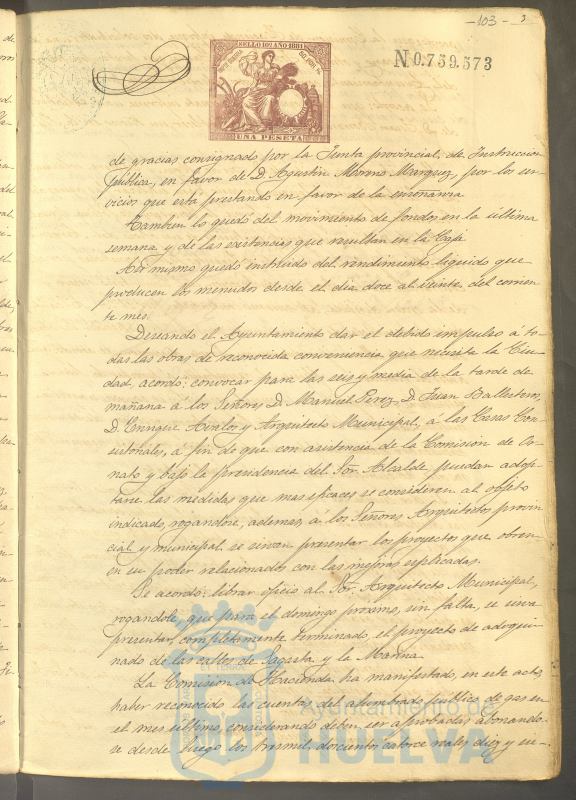 -103- 3
SELLO 10º AÑO 1881
N0.759.573
UNA PESETA
de gracias consignado por la Junta provincial, de Instruccion
pública, en favor de D. Agustin Moreno Marquez, por los ser-
vicios que esta prestando en favor de la enseñanza
Tambien lo quedó del movimiento de fondos en la última
semana y de las existencias que resultan en la Caja
Asi mismo quedó instruido del rendimiento liquido que
producen los menudos desde el dia doce al veinte del corrien-
te mes.
Deseando el Ayuntamiento dar el debido impulso á to-
das las obras de reconocida conveniencia que necesita la Ciu-
dad, acordó: convocar para las seis y media de la tarde de
mañana á los Señores D. Manuel Perez, D. Juan Ballesteros,
D. Enrique Avalos y Arquitecto Municipal, á las Casas Con-
sistoriales, á fin de que con asistencia de la Comision de Or-
nato y bajo la presidencia del Sor. Alcalde, puedan adop-
tarse las medidas que mas eficaces se consideren al objeto
indicado, rogandose, ademas, á los Señores Arquitectos provin-
cial y municipal se sirvan presentar los proyectos que obren
en su poder relacionados con las mejoras replicadas.
Se acordó: librar oficio al Sor. Arquitecto Municipal,
rogandole, que para el domingo proximo, sin falta, se sirva
presentar completamente terminado, el proyecto de adoqui-
nado de las calles de Sagasta y la Marina
La Comision de Hacienda ha manifestado, en este acto,
haber reconocido las cuentas del alumbrado público de gas en
el mes último, considerando deben ser aprobadas abonando-
se desde luego los tresmil doscientos catorce reales diez y sie-
Ayuntamiento de
HUELVA